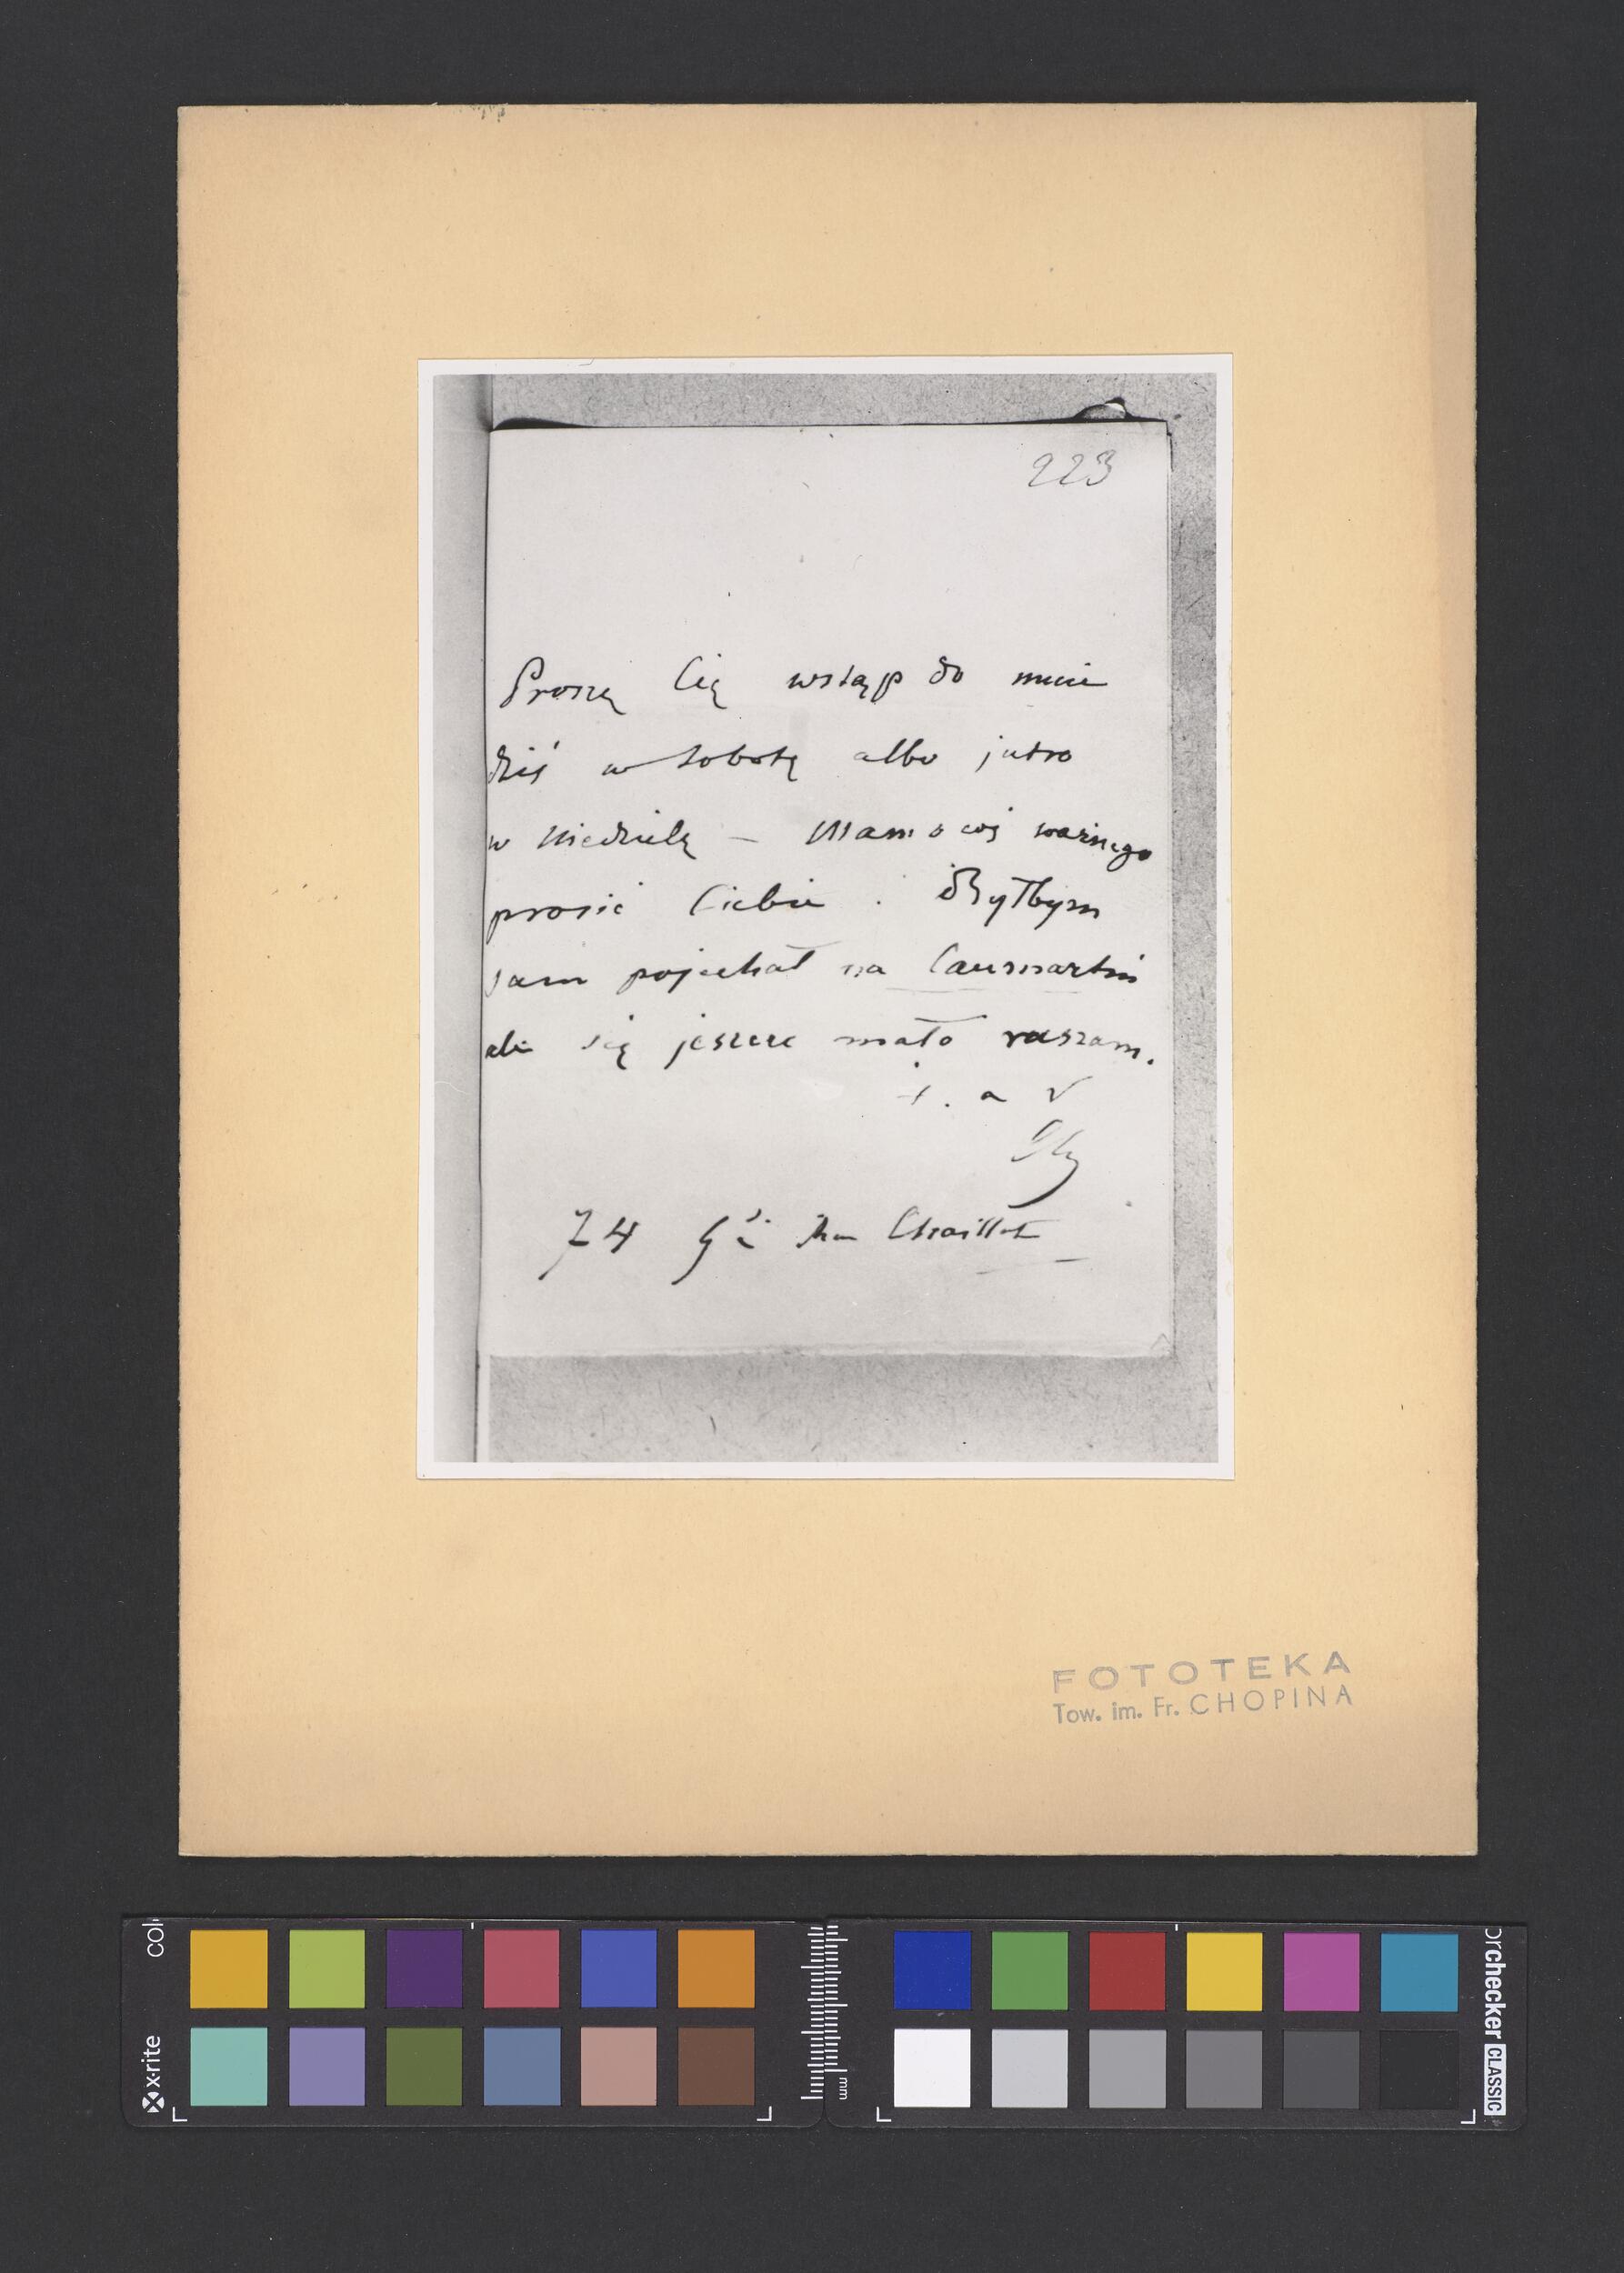 223
Proszę Cię wstąp do mnie
dziś w Sobotę albo jutro
w Niedzielę – Mam o coś ważnego
prosić Ciebie. Byłbym
sam pojechał na Caumartin
ale się jeszcze mało ruszam.
t. a v
74 Gde Rue Chaillot
FOTOTEKA
Tow. im. Fr. CHOPINA
col
x-rite
mm
orchecker CLASSIC